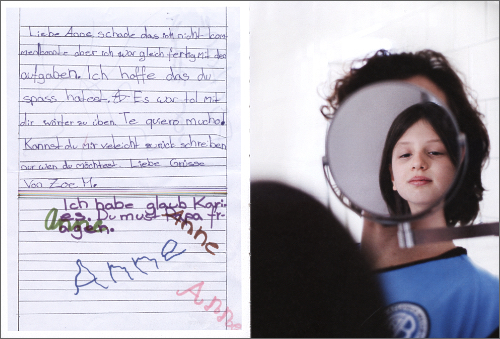 Liebe Anne, schade das ich nicht kom-
menkonnte aber ich war glech fertig mit den
aufgaben. Ich hoffe das du
spass hatest. Es war tol mit
dir wörter zu üben. Te quiero mucho.
Kannst du mir vieleicht zurück schreiben
nur wen du möchtest. Liebe Grüsse
Von Zoe. M.
Ich habe glaub Kari-
es. Du must Papa fr-
agen.
Anne
Anne
Anne
Anne